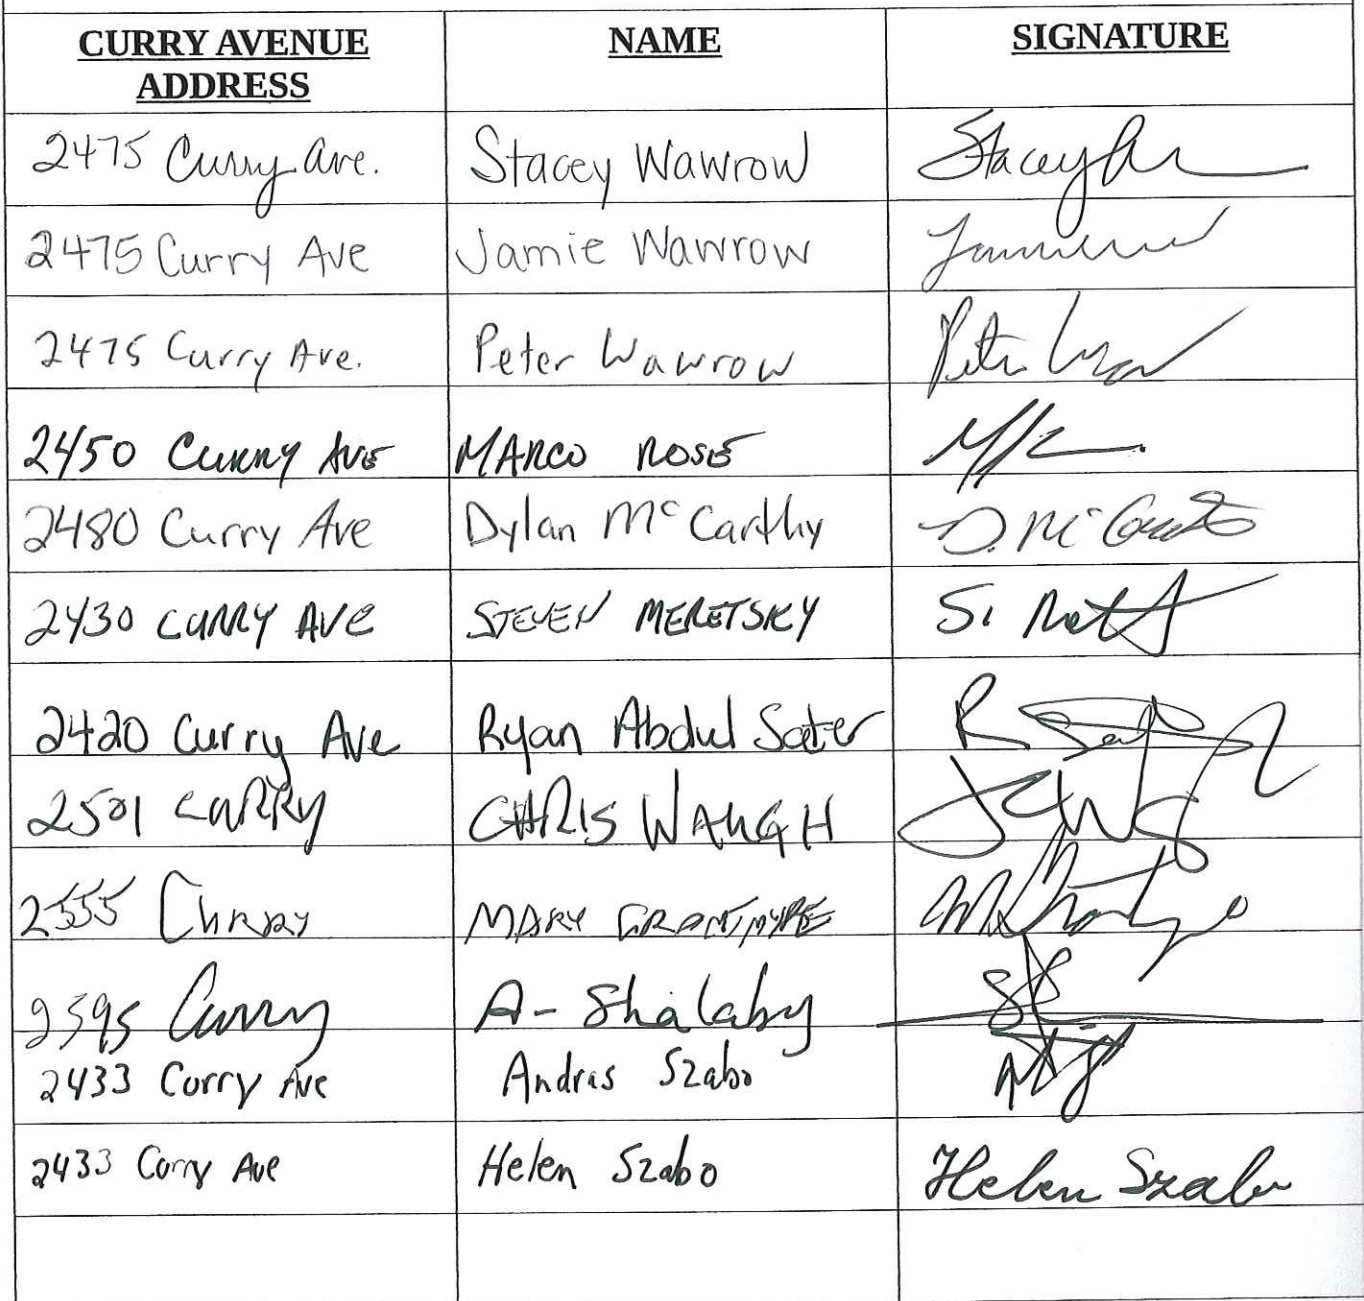 CURRY AVENUE NAME SIGNATURE
ADDRESS
2475 Curry Ave. Stacey Wawrow Stacey
2475 Curry Ave Jamie Wawrow
2475 Curry Ave. Peter Wawrow Peter
2450 Curry Ave MARCO ROSE
2480 Curry Ave Dylan McCarthy D. McCarthy
2430 CURRY AVE STEVEN MERETSKY
2420 Curry Ave Ryan Abdul Sater R
2501 CURRY CHRIS WAUGH
2555 Curry MARY GRANTMYRE
2595 Curry A- Shalaby
2433 Curry Ave Andras Szabo
2433 Curry Ave Helen Szabo Helen Szabo